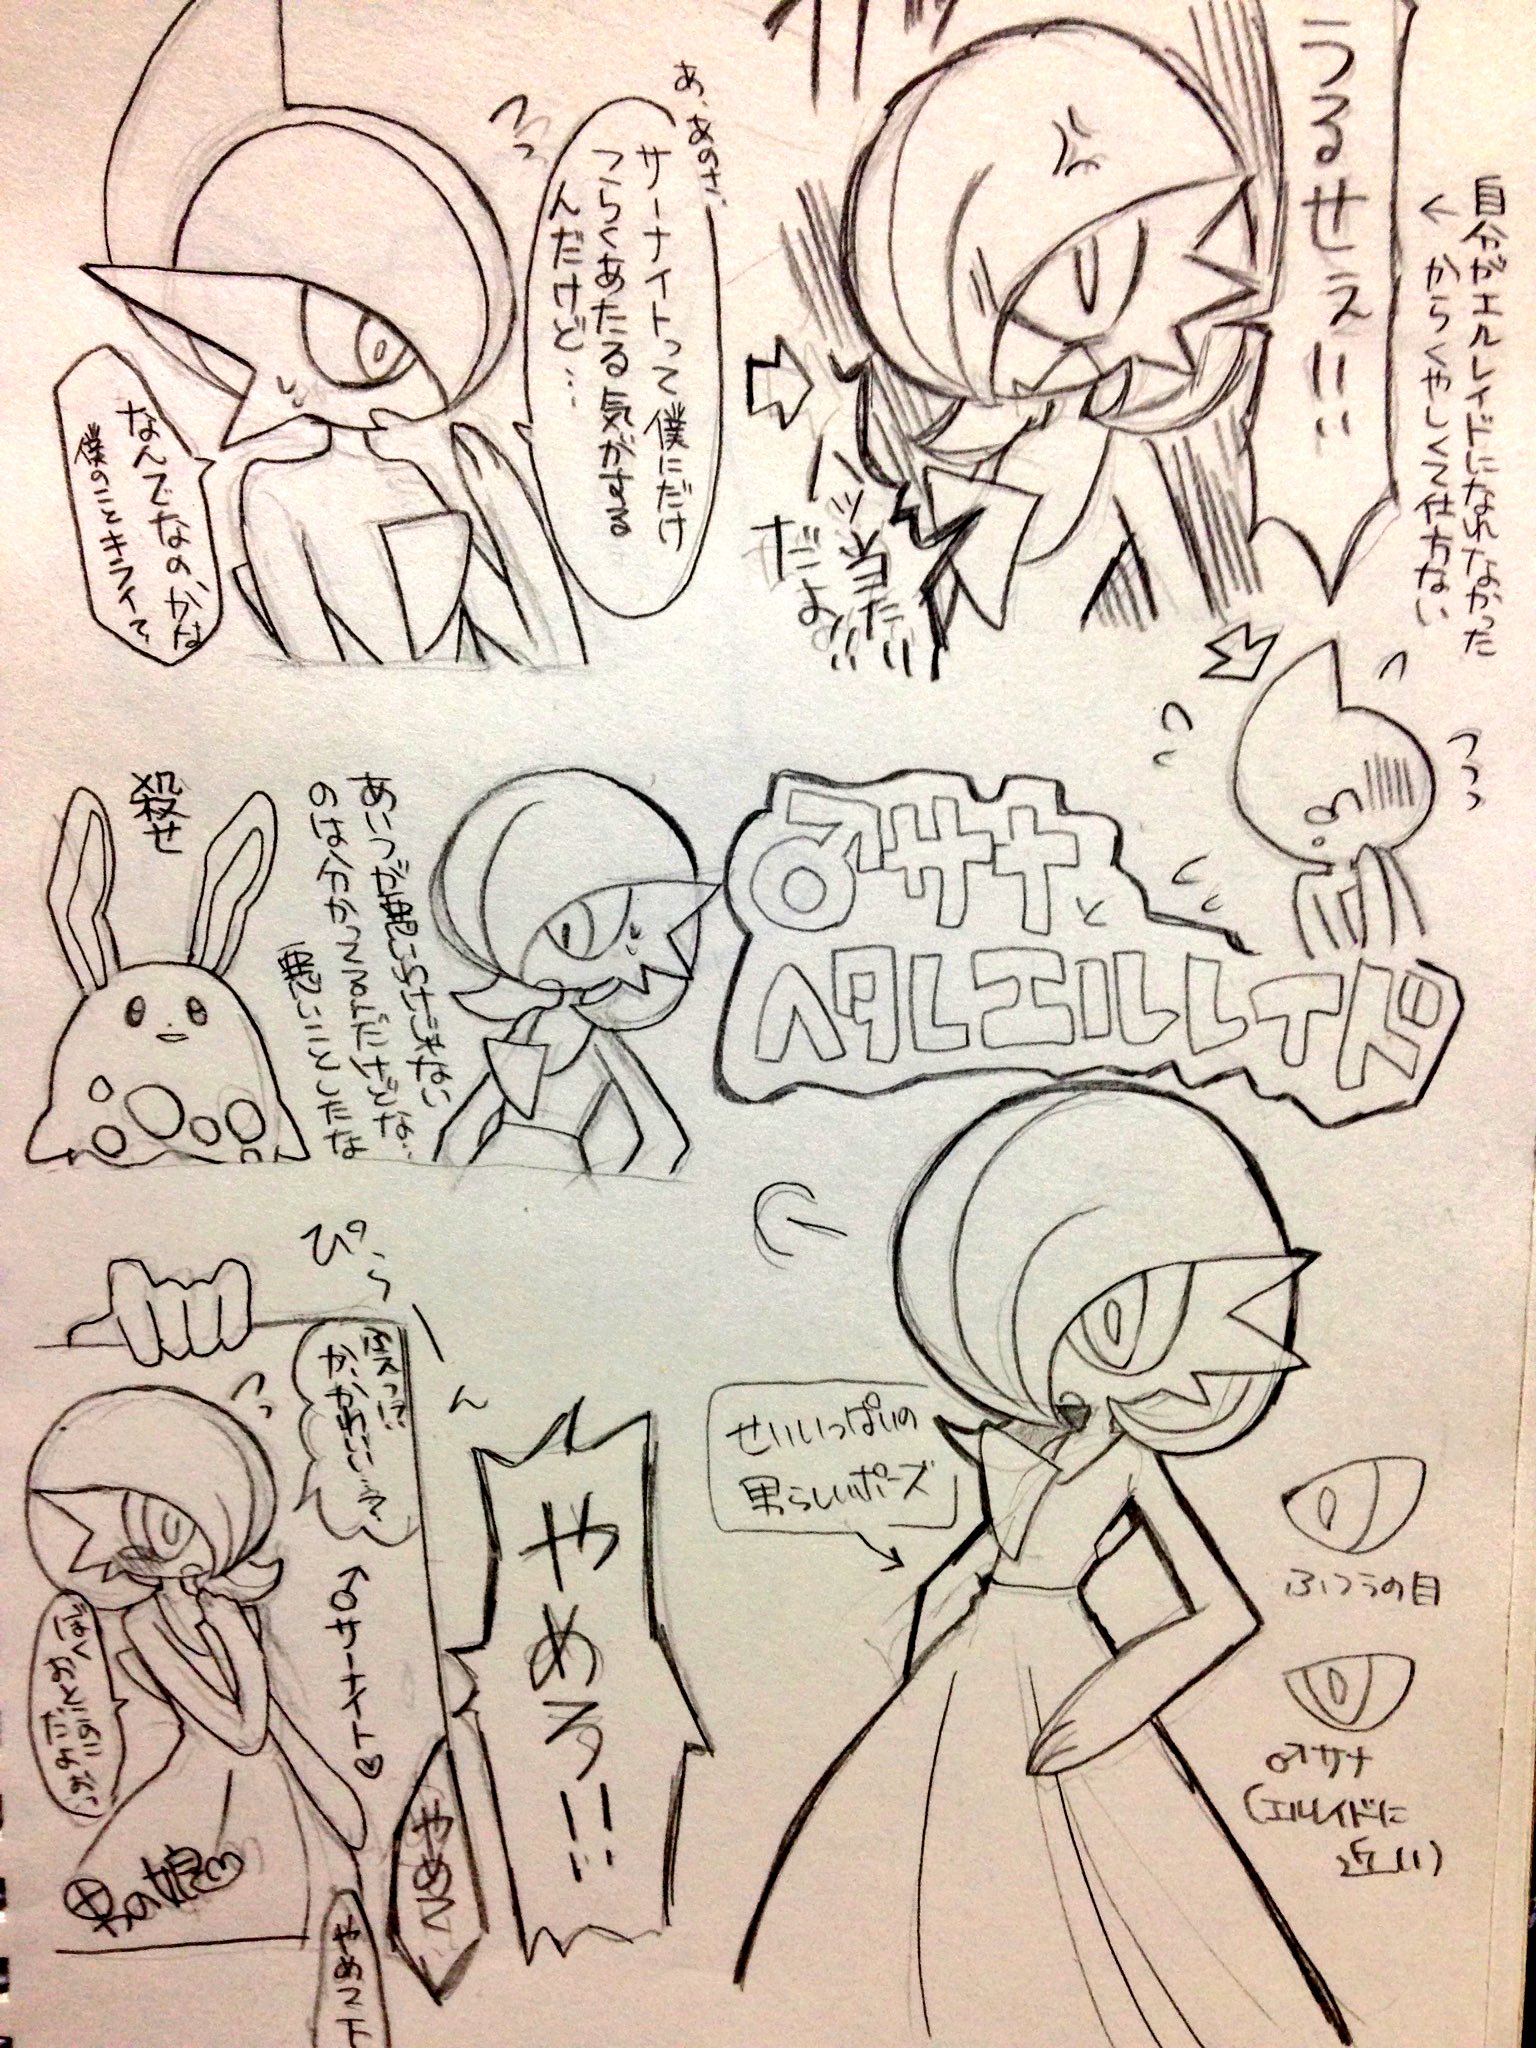 うるせぇ!!
自分がエルレイドになれなかった
からくやしくて仕方ない
あ、あのさ、
サーナイトって僕にだけ
つらくあたる気がする
んだけど…
なんでなの、かな
僕のことキライで、
ハッ当たり
だよ。
♂サナと
ヘタレエルレイド
あいつが悪いらせだゃない
のは分かってるんだけどな…
悪いことしたな
殺せ
せいいっぱいの
男らしいポーズ
ふつうの目
♂サナ
(エルレイドに
近い)
ぴらーん
やめろ!!
やめて
かわいい
♂サーナイト♡
ぼく
おとこのこ
だよお
男の娘♡
やめて下